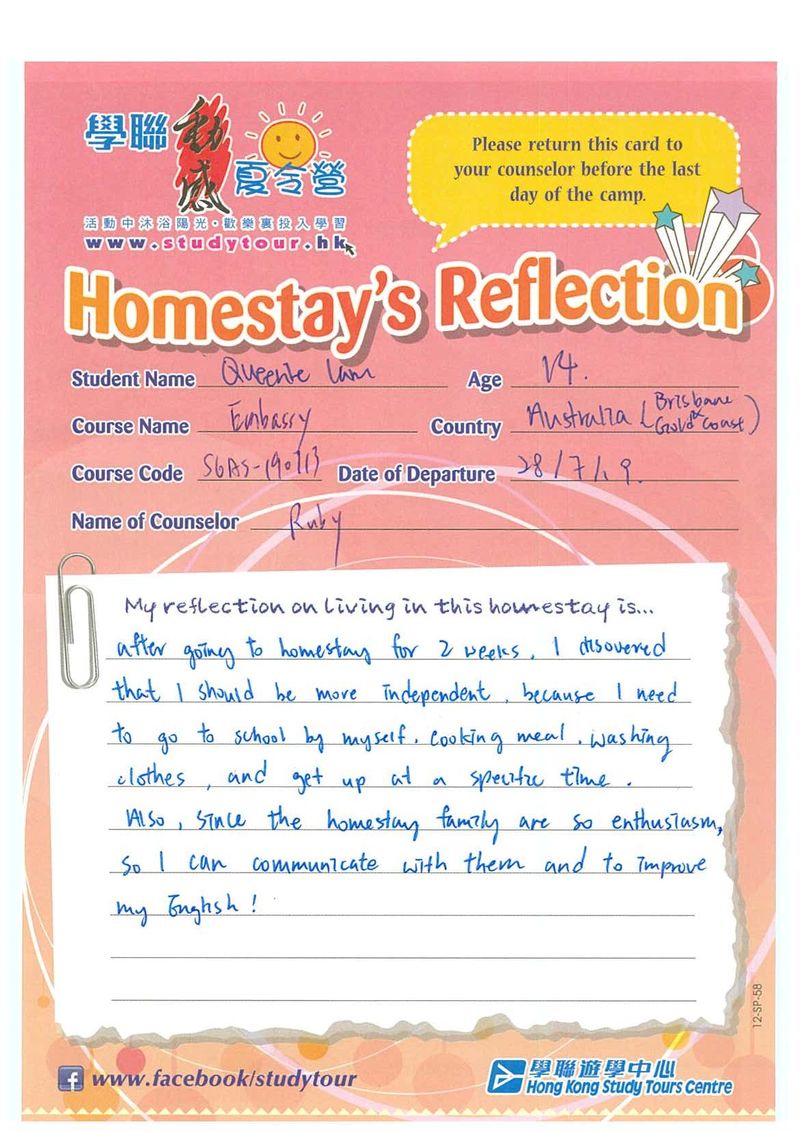 學聯動感夏令營
活動中沐浴陽光·歡樂裏投入學習
www.studytour.hk
Please return this card to
your counselor before the last
day of the camp.
Homestay's Reflection
Student Name Queenie Lam Age 14.
Course Name Embassy Country Australia (Brisbane & Gold Coast)
Course Code SGAS-190713 Date of Departure 28/7/19.
Name of Counselor Ruby
My reflection on living in this homestay is...
after going to homestay for 2 weeks, I disovered
that I should be more independent, because I need
to go to school by myself, cooking meal, washing
clothes, and get up at a specific time.
Also, since the homestay family are so enthusiasm,
so I can communicate with them and to improve
my English!
12-SP-58
www.facebook/studytour
學聯遊學中心
Hong Kong Study Tours Centre